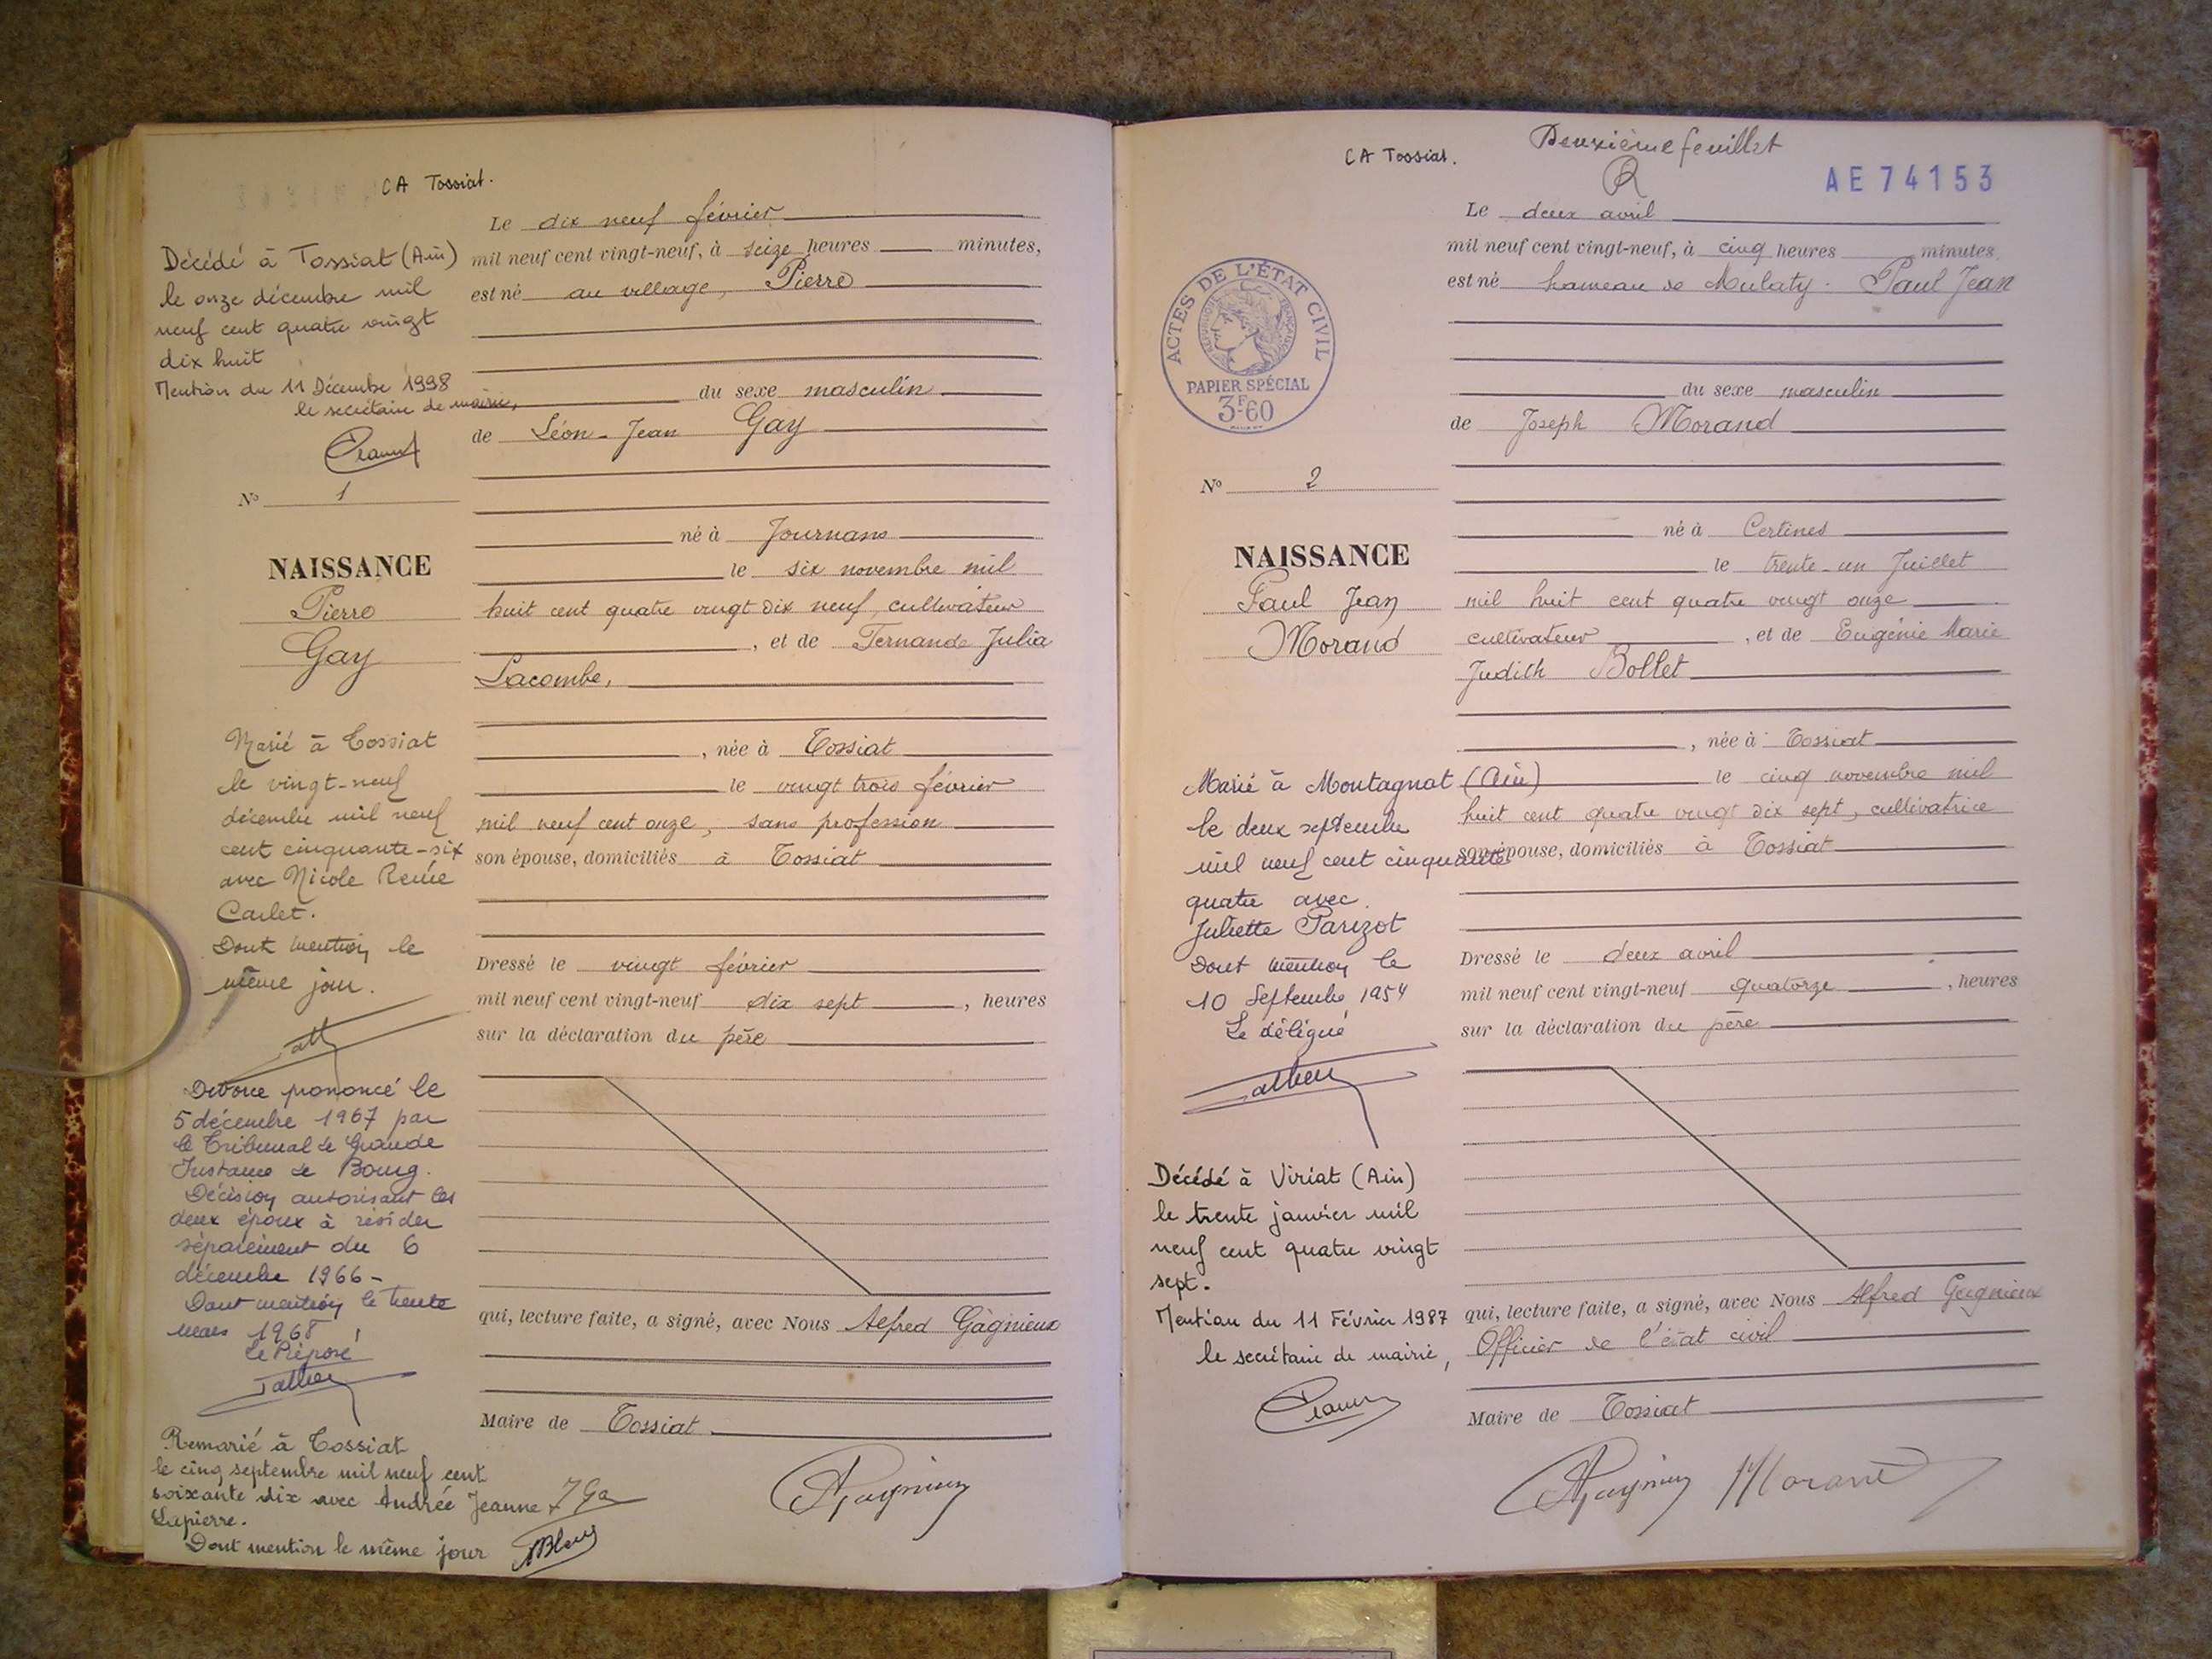 CA Tossiat.
Décédé à Tossiat (Ain)
le onze décembre mil
neuf cent quatre vingt
dix huit
Mention du 11 Décembre 1998
le secrétaire de mairie,
N° 1
NAISSANCE
Pierre
Gay
Marié à Tossiat
le vingt-neuf
décembre mil neuf
cent cinquante-six
avec Nicole Renée
Carlet.
Dont mention le
même jour.
Divorce prononcé le
5 décembre 1967 par
le Tribunal de Grande
Instance de Bourg.
Décision autorisant les
deux époux à résider
séparément du 6
décembre 1966 -
Dont mention le trente
mars 1968
Le Préposé
Remarié à Tossiat
le cinq septembre mil neuf cent
soixante dix avec Andrée Jeanne
Lapierre.
Dont mention le même jour
Le dix neuf février
mil neuf cent vingt-neuf, à seize heures minutes,
est né au village, Pierre
du sexe masculin
de Léon-Jean Gay
né à Journans
le six novembre mil
huit cent quatre vingt dix neuf, cultivateur
, et de Fernande Julia
Lacombe,
, née à Tossiat
le vingt trois février
mil neuf cent onze, sans profession
son épouse, domiciliés à Tossiat
Dressé le vingt février
mil neuf cent vingt-neuf dix sept , heures
sur la déclaration du père
qui, lecture faite, a signé, avec Nous Alfred Gagnieux
Maire de Tossiat
CA Tossiat.
Deuxième feuillet
AE 74153
ACTES DE L'ÉTAT CIVIL
RÉPUBLIQUE FRANÇAISE
PAPIER SPÉCIAL
3F60
N° 2
NAISSANCE
Paul Jean
Morand
Marié à Montagnat (Ain)
le deux septembre
mil neuf cent cinquante
quatre avec
Juliette Parizot
Dont mention le
10 Septembre 1954
Le délégué
Décédé à Viriat (Ain)
le trente janvier mil
neuf cent quatre vingt
sept.
Mention du 11 Février 1987
le secrétaire de mairie,
Le deux avril
mil neuf cent vingt-neuf, à cinq heures minutes
est né hameau de Mulaty. Paul Jean
du sexe masculin
de Joseph Morand
né à Certines
le trente-un Juillet
mil huit cent quatre vingt onze
cultivateur , et de Eugénie Marie
Judith Bollet
, née à Tossiat
le cinq novembre mil
huit cent quatre vingt dix sept, cultivatrice
son épouse, domiciliés à Tossiat
Dressé le deux avril
mil neuf cent vingt-neuf quatorze , heures
sur la déclaration du père
qui, lecture faite, a signé, avec Nous Alfred Gagnieux
Officier de l'état civil
Maire de Tossiat
Morand